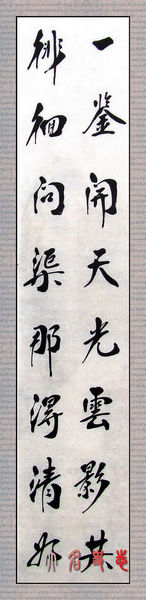 一鑒開天光雲影共
徘徊問渠那得清如